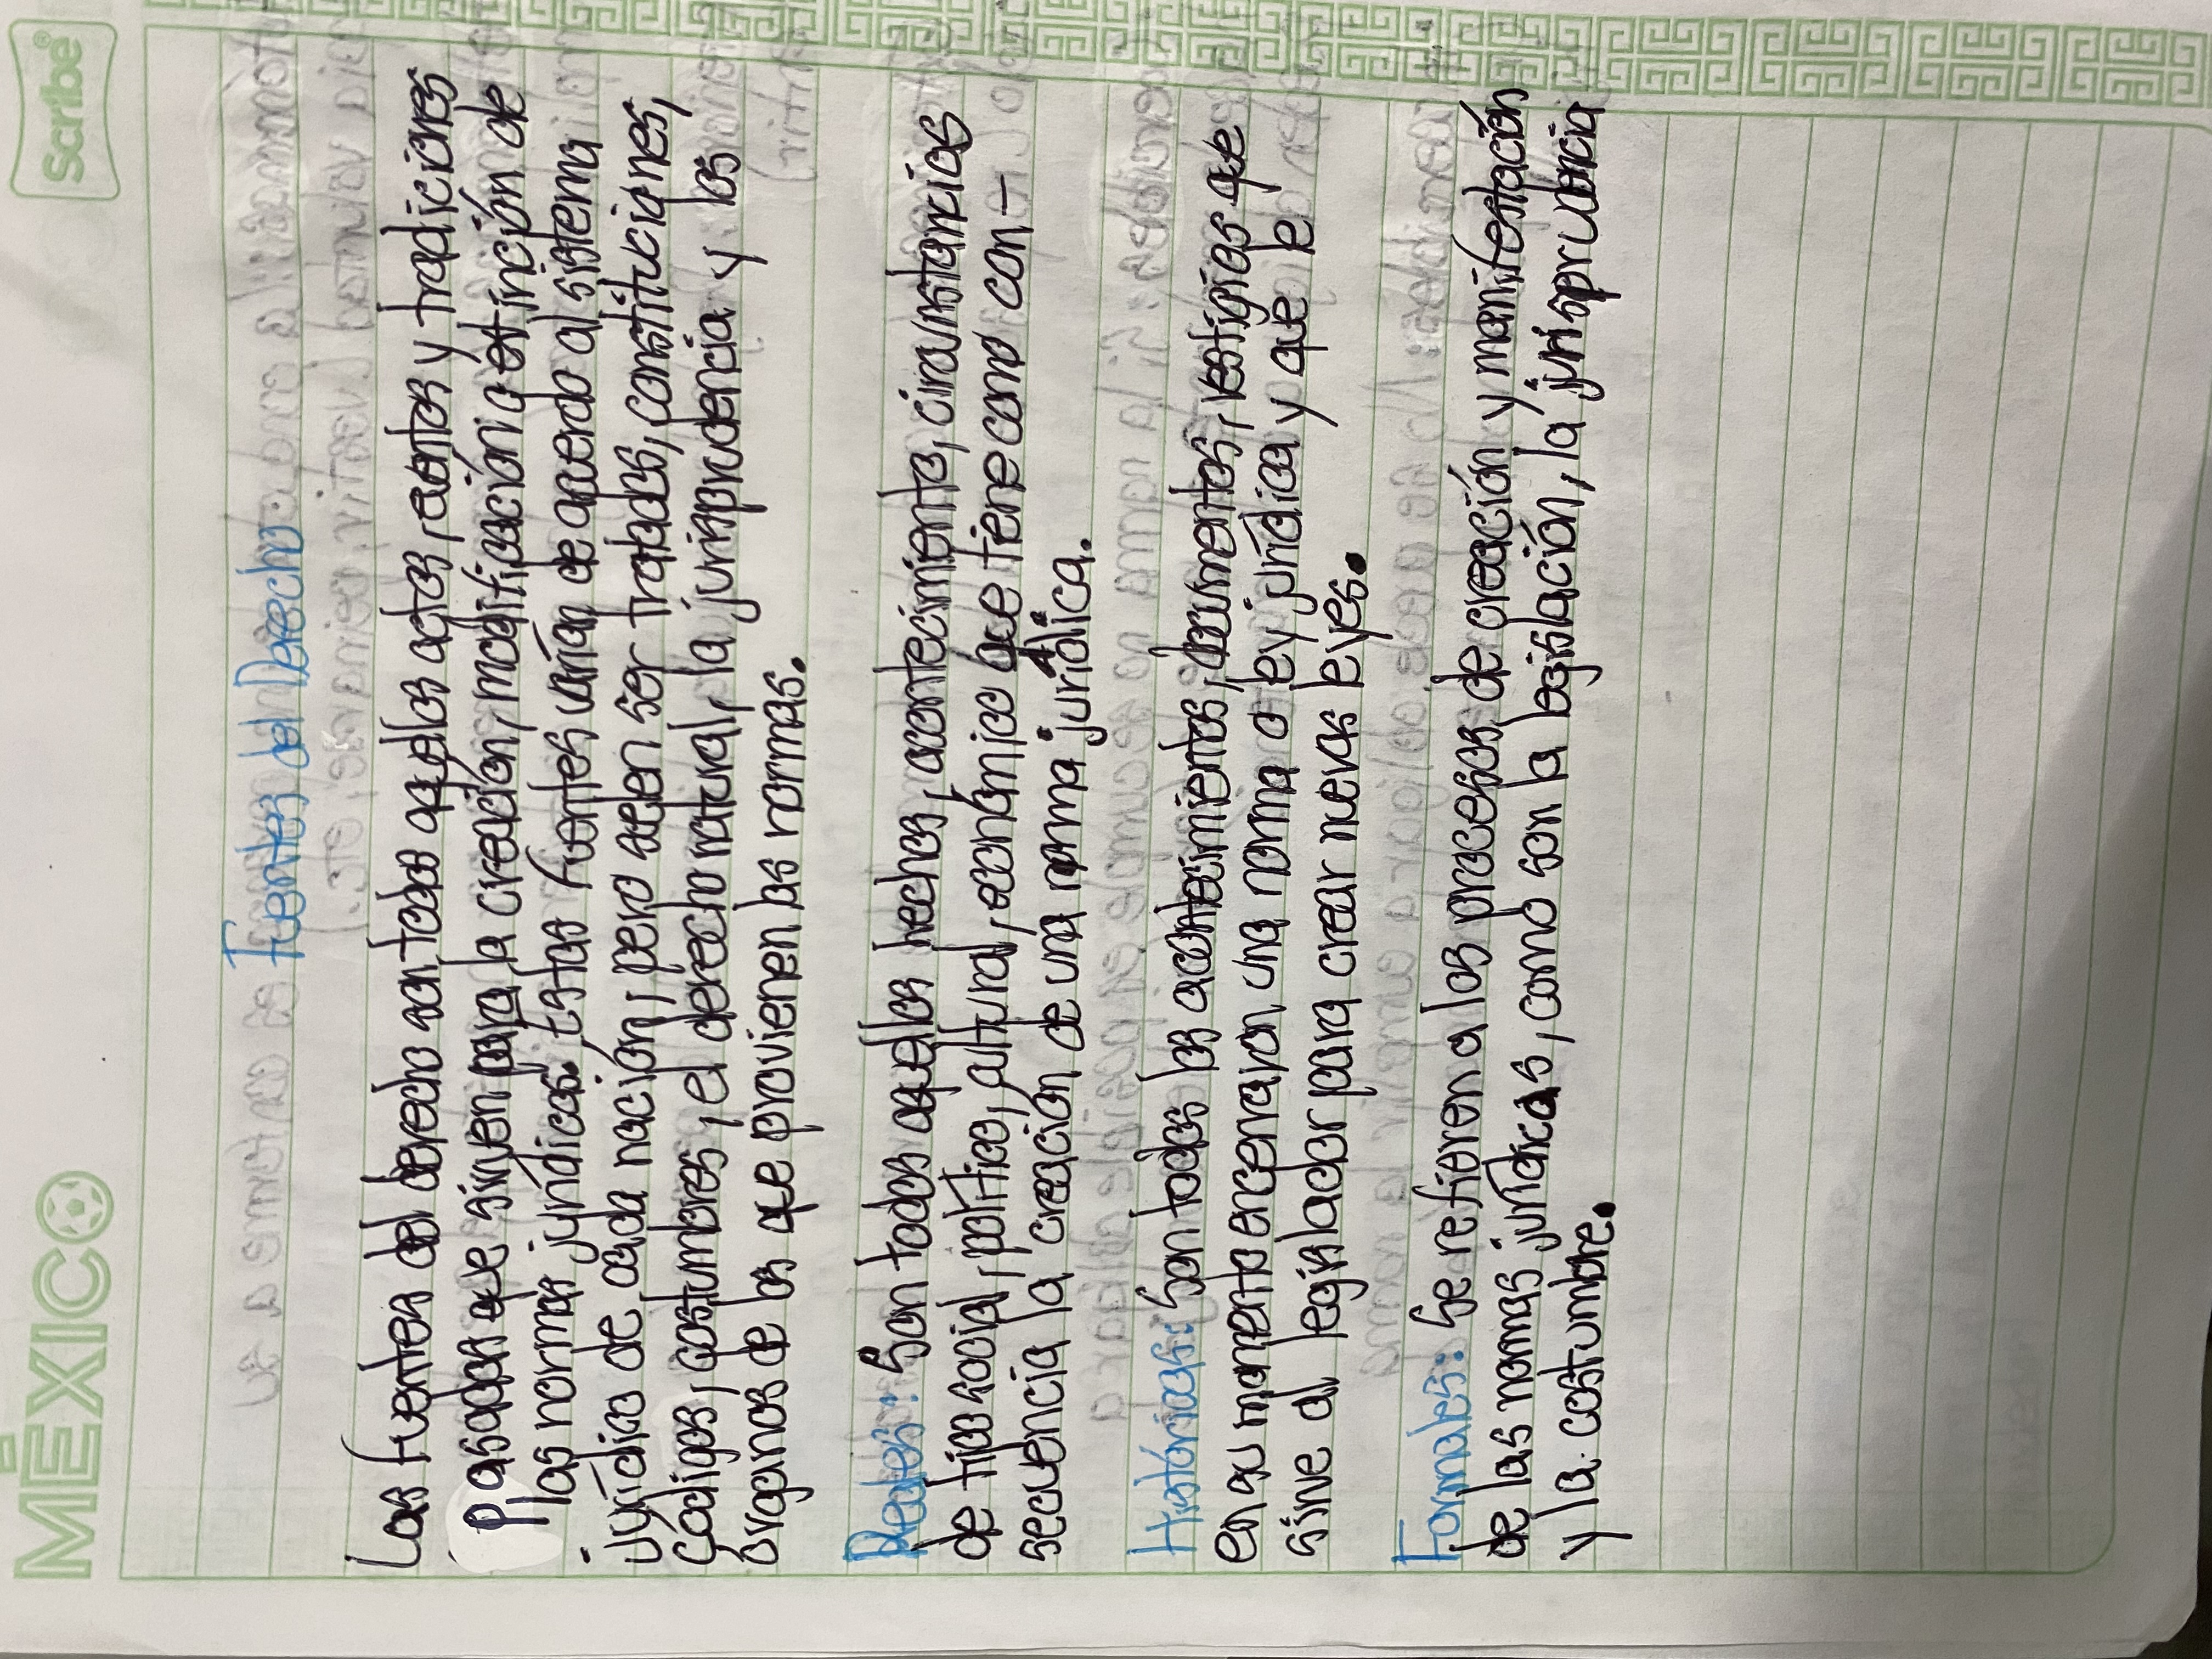 MÉXICO
Scribe®
Fuentes del Derecho
Las fuentes del derecho son todos aquellos actos, eventos y tradiciones
pasados que sirven para la creación, modificación o extinción de
las normas jurídicas. Estas fuentes varían de acuerdo al sistema
jurídico de cada nación, pero suelen ser tratados, constituciones,
códigos, costumbres, el derecho natural, la jurisprudencia y los
órganos de los que provienen las normas.
Reales: Son todos aquellos hechos, acontecimiento, circunstancias
de tipo social, político, cultural, económico que tiene como con-
secuencia la creación de una norma jurídica.
Históricas: Son todos los acontecimientos, documentos, vestigios que
en su momento encerraron una norma o ley jurídica y que le
sirve al legislador para crear nuevas leyes.
Formales: Se refieren a los procesos de creación y manifestación
de las normas jurídicas, como son la legislación, la jurisprudencia
y la costumbre.